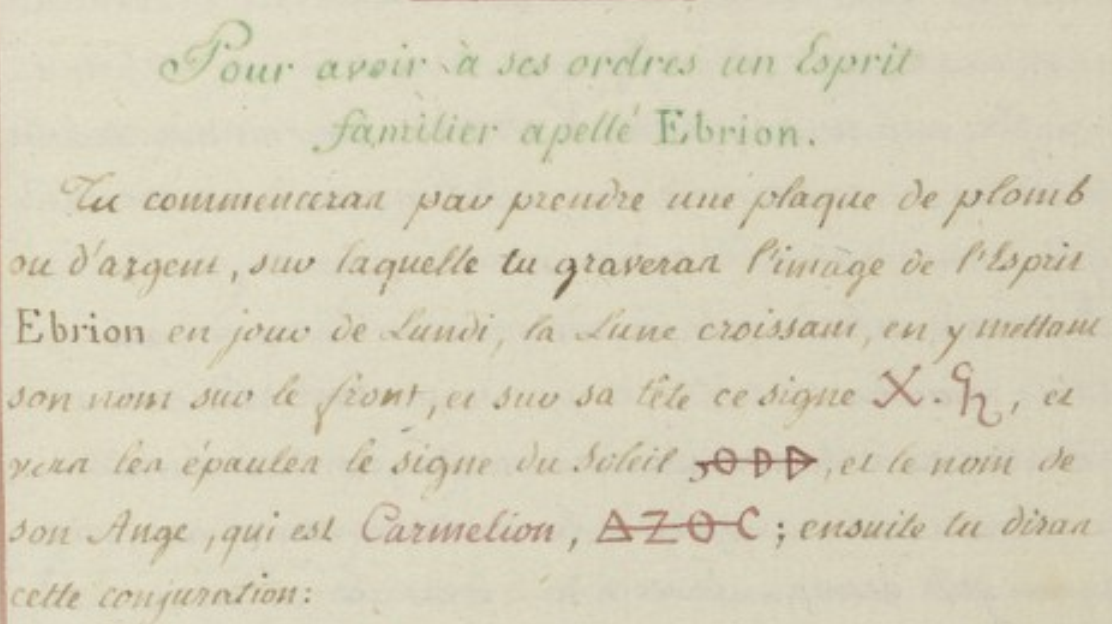 Pour avoir à ses ordres un Esprit
familier apellé Ebrion.
Tu commenceras par prendre une plaque de plomb
ou d'argent, sur laquelle tu graveras l'image de l'Esprit
Ebrion en jour de Lundi, la Lune croissant, en y mettant
son nom sur le front, et sur sa tête ce signe X. , et
vers les épaules le signe du Soleil , et le nom de
son Ange, qui est Carmelion, AZOC; ensuite tu diras
cette conjuration: